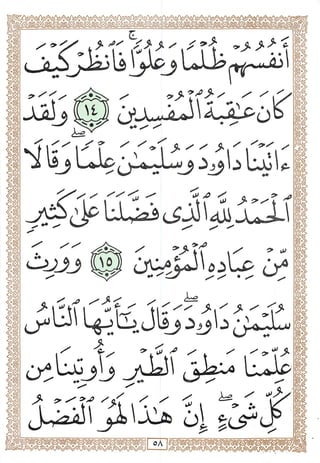 أَنفُسُهُمْ ظُلْمًا وَعُلُوًّا ۚ فَٱنظُرْ كَيْفَ
كَانَ عَـٰقِبَةُ ٱلْمُفْسِدِينَ ١٤ وَلَقَدْ
ءَاتَيْنَا دَاوُۥدَ وَسُلَيْمَـٰنَ عِلْمًا ۖ وَقَالَا
ٱلْحَمْدُ لِلَّهِ ٱلَّذِى فَضَّلَنَا عَلَىٰ كَثِيرٍ
مِّنْ عِبَادِهِ ٱلْمُؤْمِنِينَ ١٥ وَوَرِثَ
سُلَيْمَـٰنُ دَاوُۥدَ ۖ وَقَالَ يَـٰٓأَيُّهَا ٱلنَّاسُ
عُلِّمْنَا مَنطِقَ ٱلطَّيْرِ وَأُوتِينَا مِن
كُلِّ شَىْءٍ ۖ إِنَّ هَـٰذَا لَهُوَ ٱلْفَضْلُ
٥٨